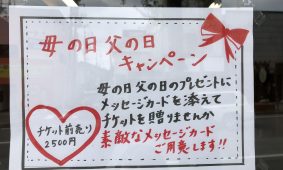 母の日父の日
キャンペーン
母の日父の日のプレゼントに
メッセージカードを添えて
チケットを贈りませんか
素敵なメッセージカード
ご用意します!!
チケット前売り
2500円